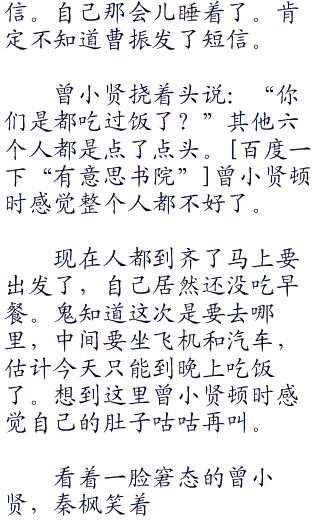 信。自己那会儿睡着了。肯
定不知道曹振发了短信。
曾小贤挠着头说：“你
们是都吃过饭了？”其他六
个人都是点了点头。[百度一
下“有意思书院”]曾小贤顿
时感觉整个人都不好了。
现在人都到齐了马上要
出发了，自己居然还没吃早
餐。鬼知道这次是要去哪
里，中间要坐飞机和汽车，
估计今天只能到晚上吃饭
了。想到这里曾小贤顿时感
觉自己的肚子咕咕再叫。
看着一脸窘态的曾小
贤，秦枫笑着